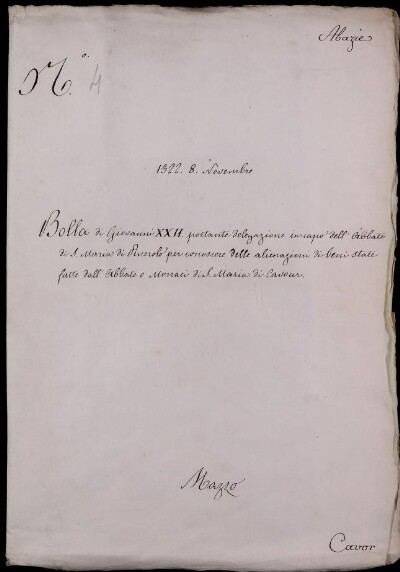 Abazie
N.° 4
1322. 8. Novembre
Bolla di Giovanni XXII. portante delegazione in capo dell' Abbate
di S. Maria di Pinerolo per conoscere delle alienazioni di beni state
fatte dall' Abbate e Monaci di S. Maria di Cavour.
Mazzo
Cavor